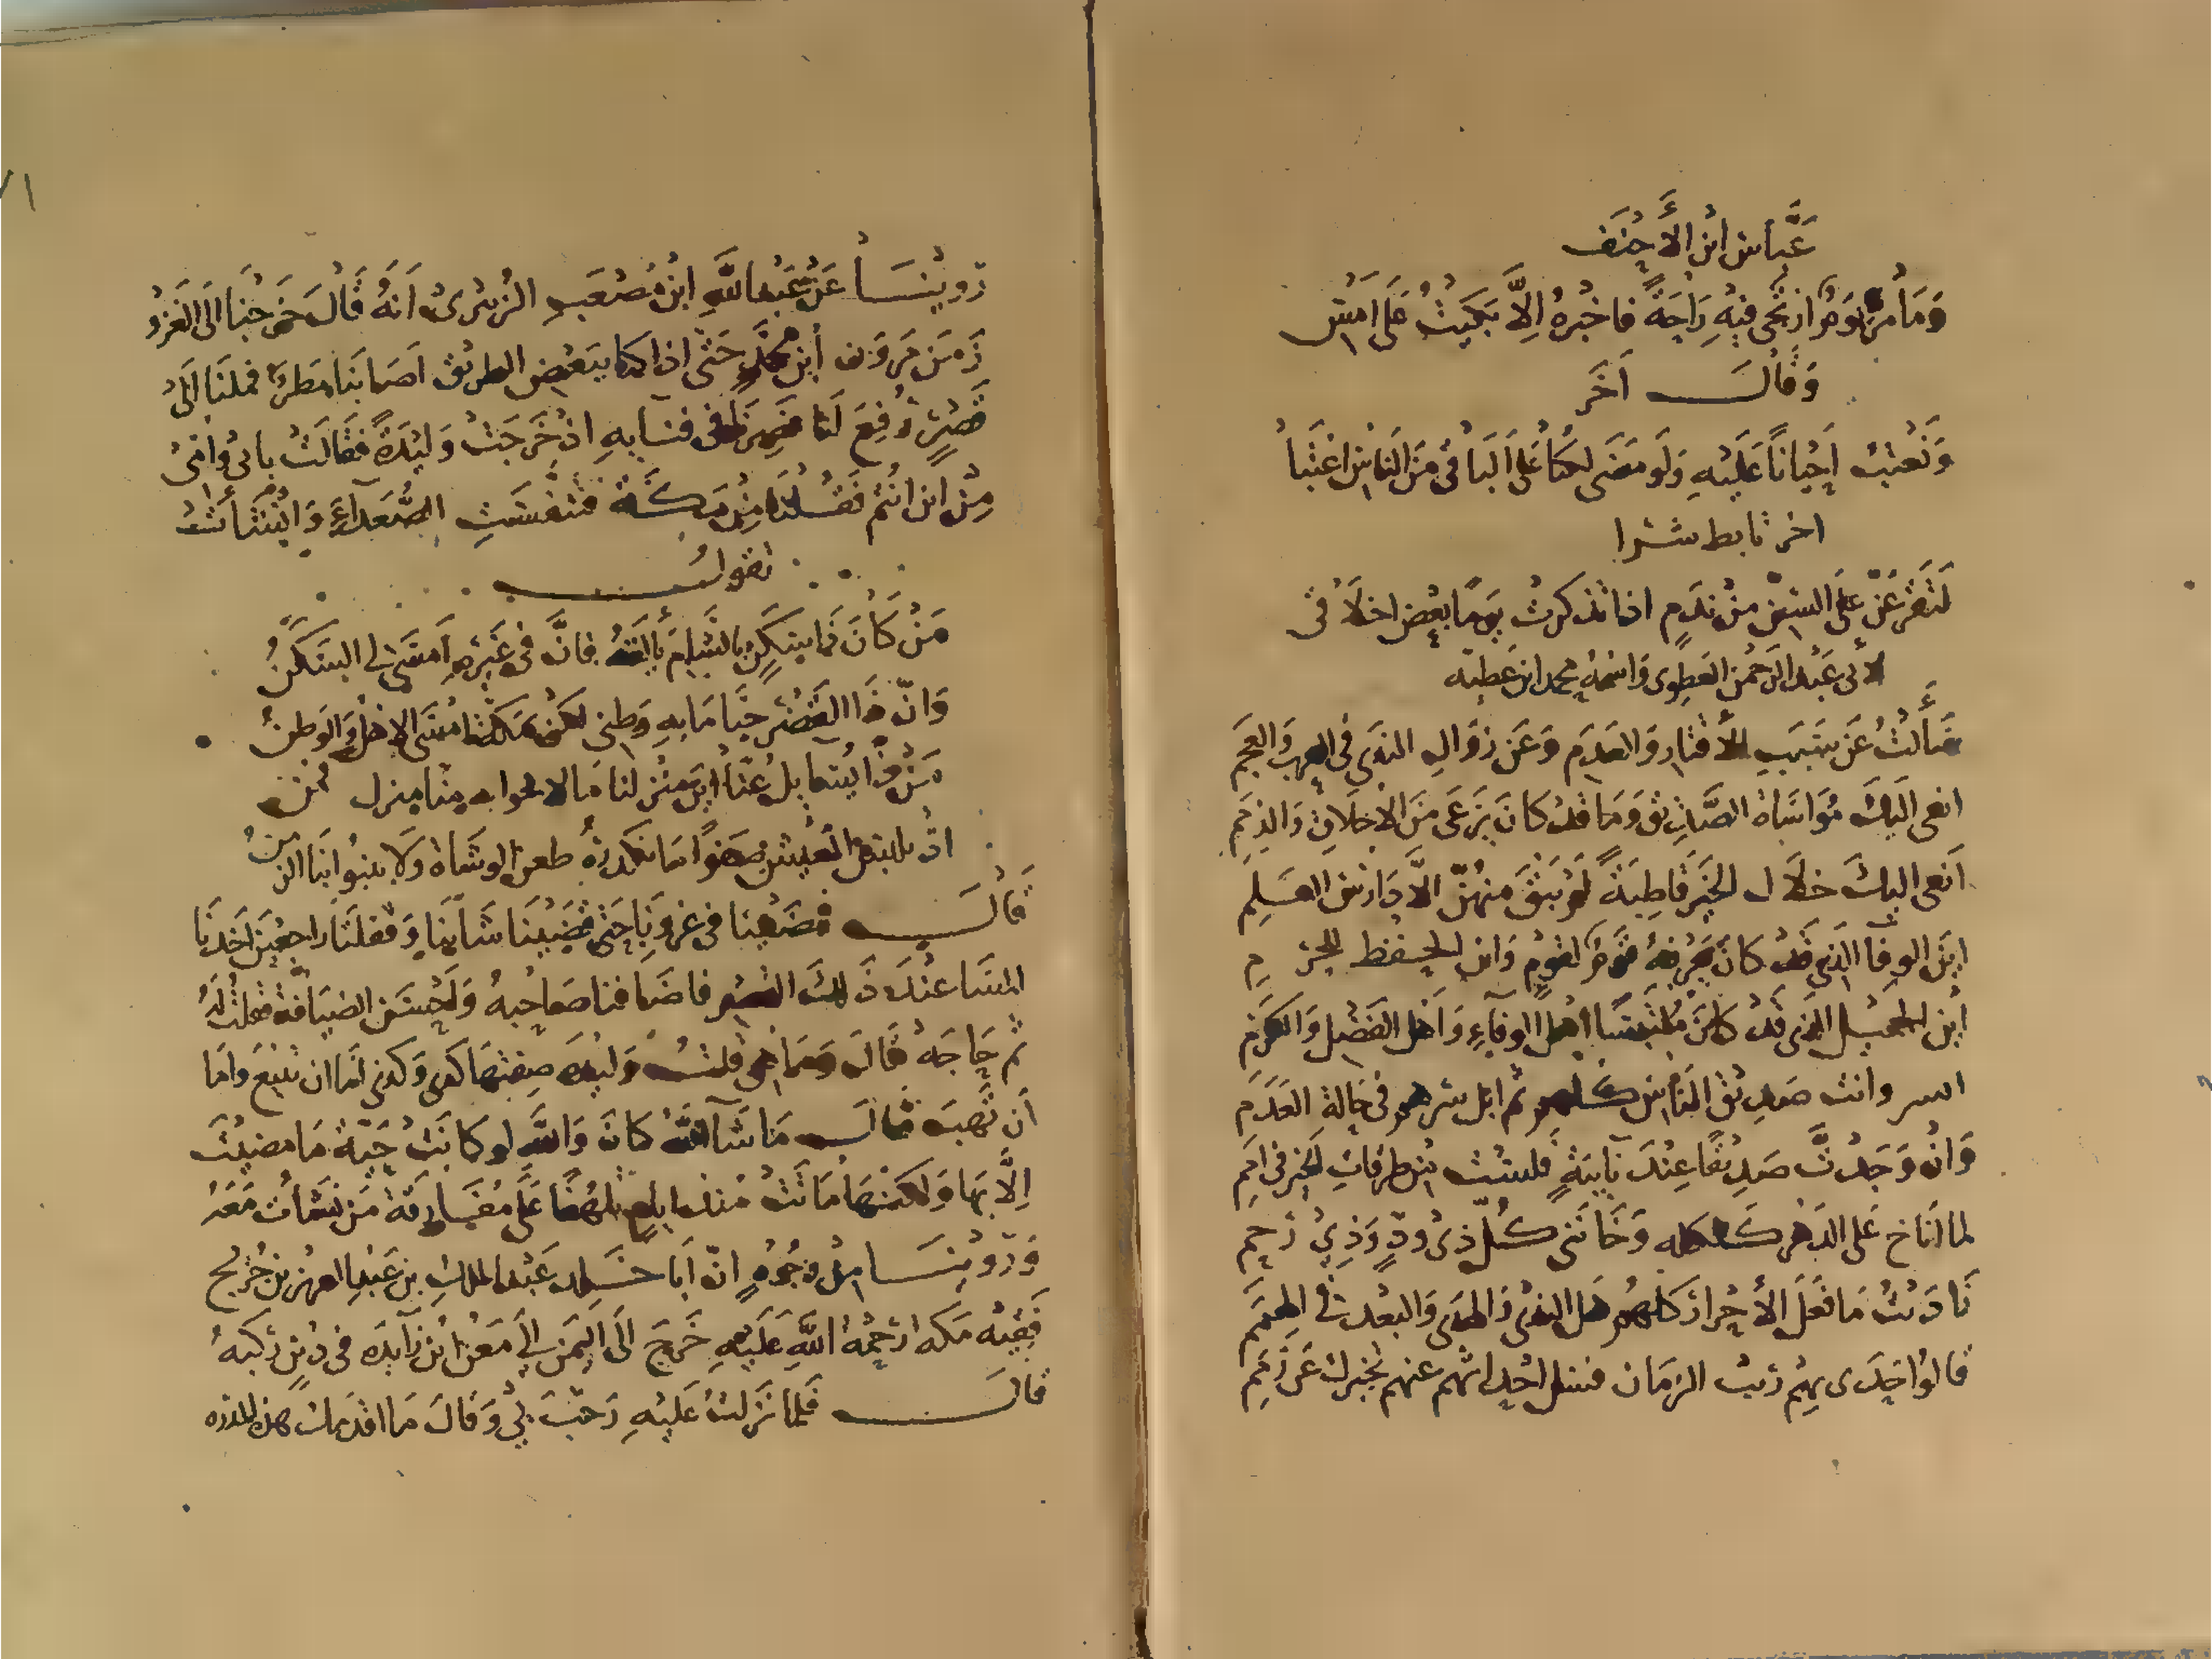 عَبَّاس ابْن الأَحْنَف
وَمَا مَرَّ يَوْمٌ ارْتَجِي فِيْهِ رَاحَةً فاخْبُرهُ الاَّ بَكَيْتُ عَلَى امْسِ
وَقَالَ آخَر
وَنَعْتِبُ احْيَاناً عَلَيْهِ وَلَو مَضَى لكُنَّا عَلَى البَاقِي مِنَ النَاسِ اعْتَبَا
اخر تابط شرا
لَتَقْرَعَنَّ عَلَيَّ السِّنَّ مِنْ نَدَمٍ اذا تذكرتُ يَومًا بعْضَ اخلاَقي
لأبي عَبْد الرَحْمن العَطِوى وَاسْمُهُ محمد ابن عَطيه
سَأَلْتُ عَن سَبَبِ الأقتارِ وَالعَدَمِ وَعَن زَوَالِ الندَى فى العرب وَالعَجَمِ
انعى الَيكَ مُوَاسَاة الصَّدِيْقِ وَمَا قَدْ كَانَ يُرْعَى مِنَ الاخلاقِ وَالذِمَمِ
اَنعى اليكَ خلاَل الخَيْرِ قَاطِبَةً لَمْ يَبْقَ منهُنَّ الاَّ دَارسُ العَلَمِ
ايْنَ الوفَآ الَّذِي قَدْ كَانَ يَعْرفهُ قَوْمٌ لقَومٍ وَاين الحفظ للحرمِ
ايْن الجميل الذِي قَدْ كَانَ مُلْتَبِسًا اهل الوفَآءِ وَاهْل الفَضْلِ وَالكَرَمِ
ايسر وانت صَدِيْق النَاسِ كلهِم ثم ابل سرهم فى حَالةِ العَدَمِ
وَانْ وَجَدْتَ صَدِيْقًا عِنْدَ نَآيبَةٍ فلَسْتَ مِنْ طرقاتِ الخَيْرِ فى امَمِ
لما انَاخ عَلى الدَهر كَلكله وَخَانَنِي كُلُّ ذِى وِدٍّ وَذِي رَحِمِ
نَادَيْتُ مَا فَعَلَ الأَحْرَارُ كلهُم اهل الندى وَالهدَى وَالبعْد فى الهِمَمِ
قالُوا حَدَى بهِم رَيْبُ الزمَان فسل احْدَاثهم عنهم تخبرك عَن رِمَمِ
رَوَيْنَا عَنْ عَبْد اللَّهِ ابْن مُصْعَبِ الزبَيْرِىْ اَنَهُ قَالَ خَرَجْنَا الَى الغَزْو
زَمَن مَروَان ابْن محمَّدٍ حَتَى اذا كنا ببَعْضِ الطريق اَصَابَنَا مَطَرٌ فملنَا الَى
قَصْرٍ رُفِعَ لَنَا فَصِرْنَا فى فنَايِهِ اذ خَرَجَتْ وَليْدَةٌ فَقَالَتْ بابى وُامّى
مِنْ اين انْتُم فقُلْنَا مِن مَكَة فتَنَفَسَتِ الصُّعَدَآءَ وَانْشَأَتْ
تقول
مَنْ كَانَ ذَا سَكَنٍ بالشَامِ يَألَفُهُ فانَّ فى غَيْرِهِ اَمسَى لى السَكَنُ
وَانَّ ذَا القَصْرَ حَقًّا مَا بِهِ وَطنى لكن بمَكَةَ امْسَى الاهْلُ وَالوَطَنُ
مَنْ ذَا يُسَائِلُ عَنَّا ايْنَ منْزلنا فالاقحوانه منّا منزل قمن
اذ نلبس العَيش صَفْوًا مَا يكدرهُ طعن الوشَاة وَلا ينبُوا بنَا الزمنُ
قَالَ فمضَيْنا فى غزوَتِنا حَتى قضَيْنَا شَأنَنَا وَقفلنَا راجعِينَ اخَذنَا
المسَا عنْدَ ذَلِكَ القصر فاضَافنا صَاحبهُ وَاحْسَنَ الضيَافة فقلتُ لهُ
ثم حَاجَةٌ قَالَ وَمَا هى قلتُ وَليْدَه صِفتهَا كذى وَكذى امَّا ان تبيْعَ وامَا
اَن تَهبَ قال مَا شَآ اللَّهُ كَانَ وَاللَّهِ لو كَانَتْ حَيّةٌ مَا مضيْتَ
اِلَّا بهَا وَلكنهَا مَاتَتْ مُنذ ايامٍ تلهُفًا عَلَى مُفَارقَة مَن نشَأتْ مَعَهُ
وَرَوَيْنَا مِنْ وُجُوهٍ انّ ابَا خَالد عَبْد الملك بن عَبْد العزيز بن جُرَيج
فَقِيْه مَكه رَحْمَةُ اللَّهِ عَلَيْهِ خَرَجَ الَى اليَمَن الَى مَعْن ابْن زَآيدَه فى دَيْنٍ رَكبهُ
قال فَلمَا نَزلتُ عَلَيْهِ رَحّبَ بي وَقالَ مَا اقدَمَك هذه البلده